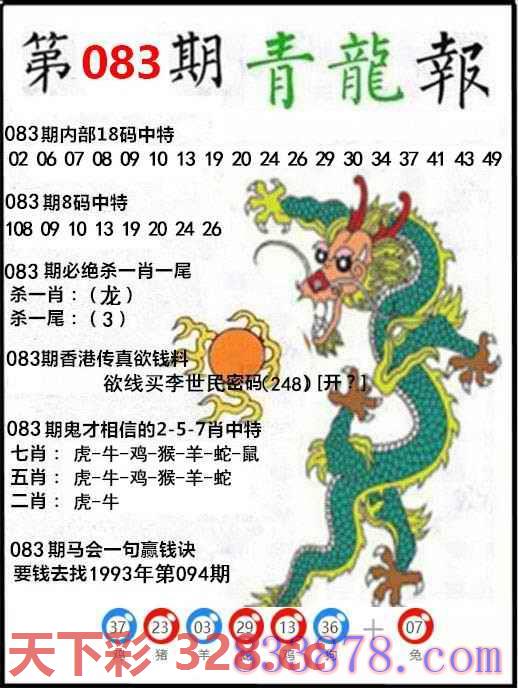 第083期 青龍報
083期内部18码中特
02 06 07 08 09 10 13 19 20 24 26 29 30 34 37 41 43 49
083期8码中特
108 09 10 13 19 20 24 26
083期必绝杀一肖一尾
杀一肖：（龙）
杀一尾：（3）
083期香港传真欲钱料
欲线买李世民密码(248)[开？]
083期鬼才相信的2-5-7肖中特
七肖：虎-牛-鸡-猴-羊-蛇-鼠
五肖：虎-牛-鸡-猴-羊-蛇
二肖：虎-牛
083期马会一句赢钱诀
要钱去找1993年第094期
37 23 03 29 13 36 + 07
猪 羊 狗 兔
天下彩
833878.com